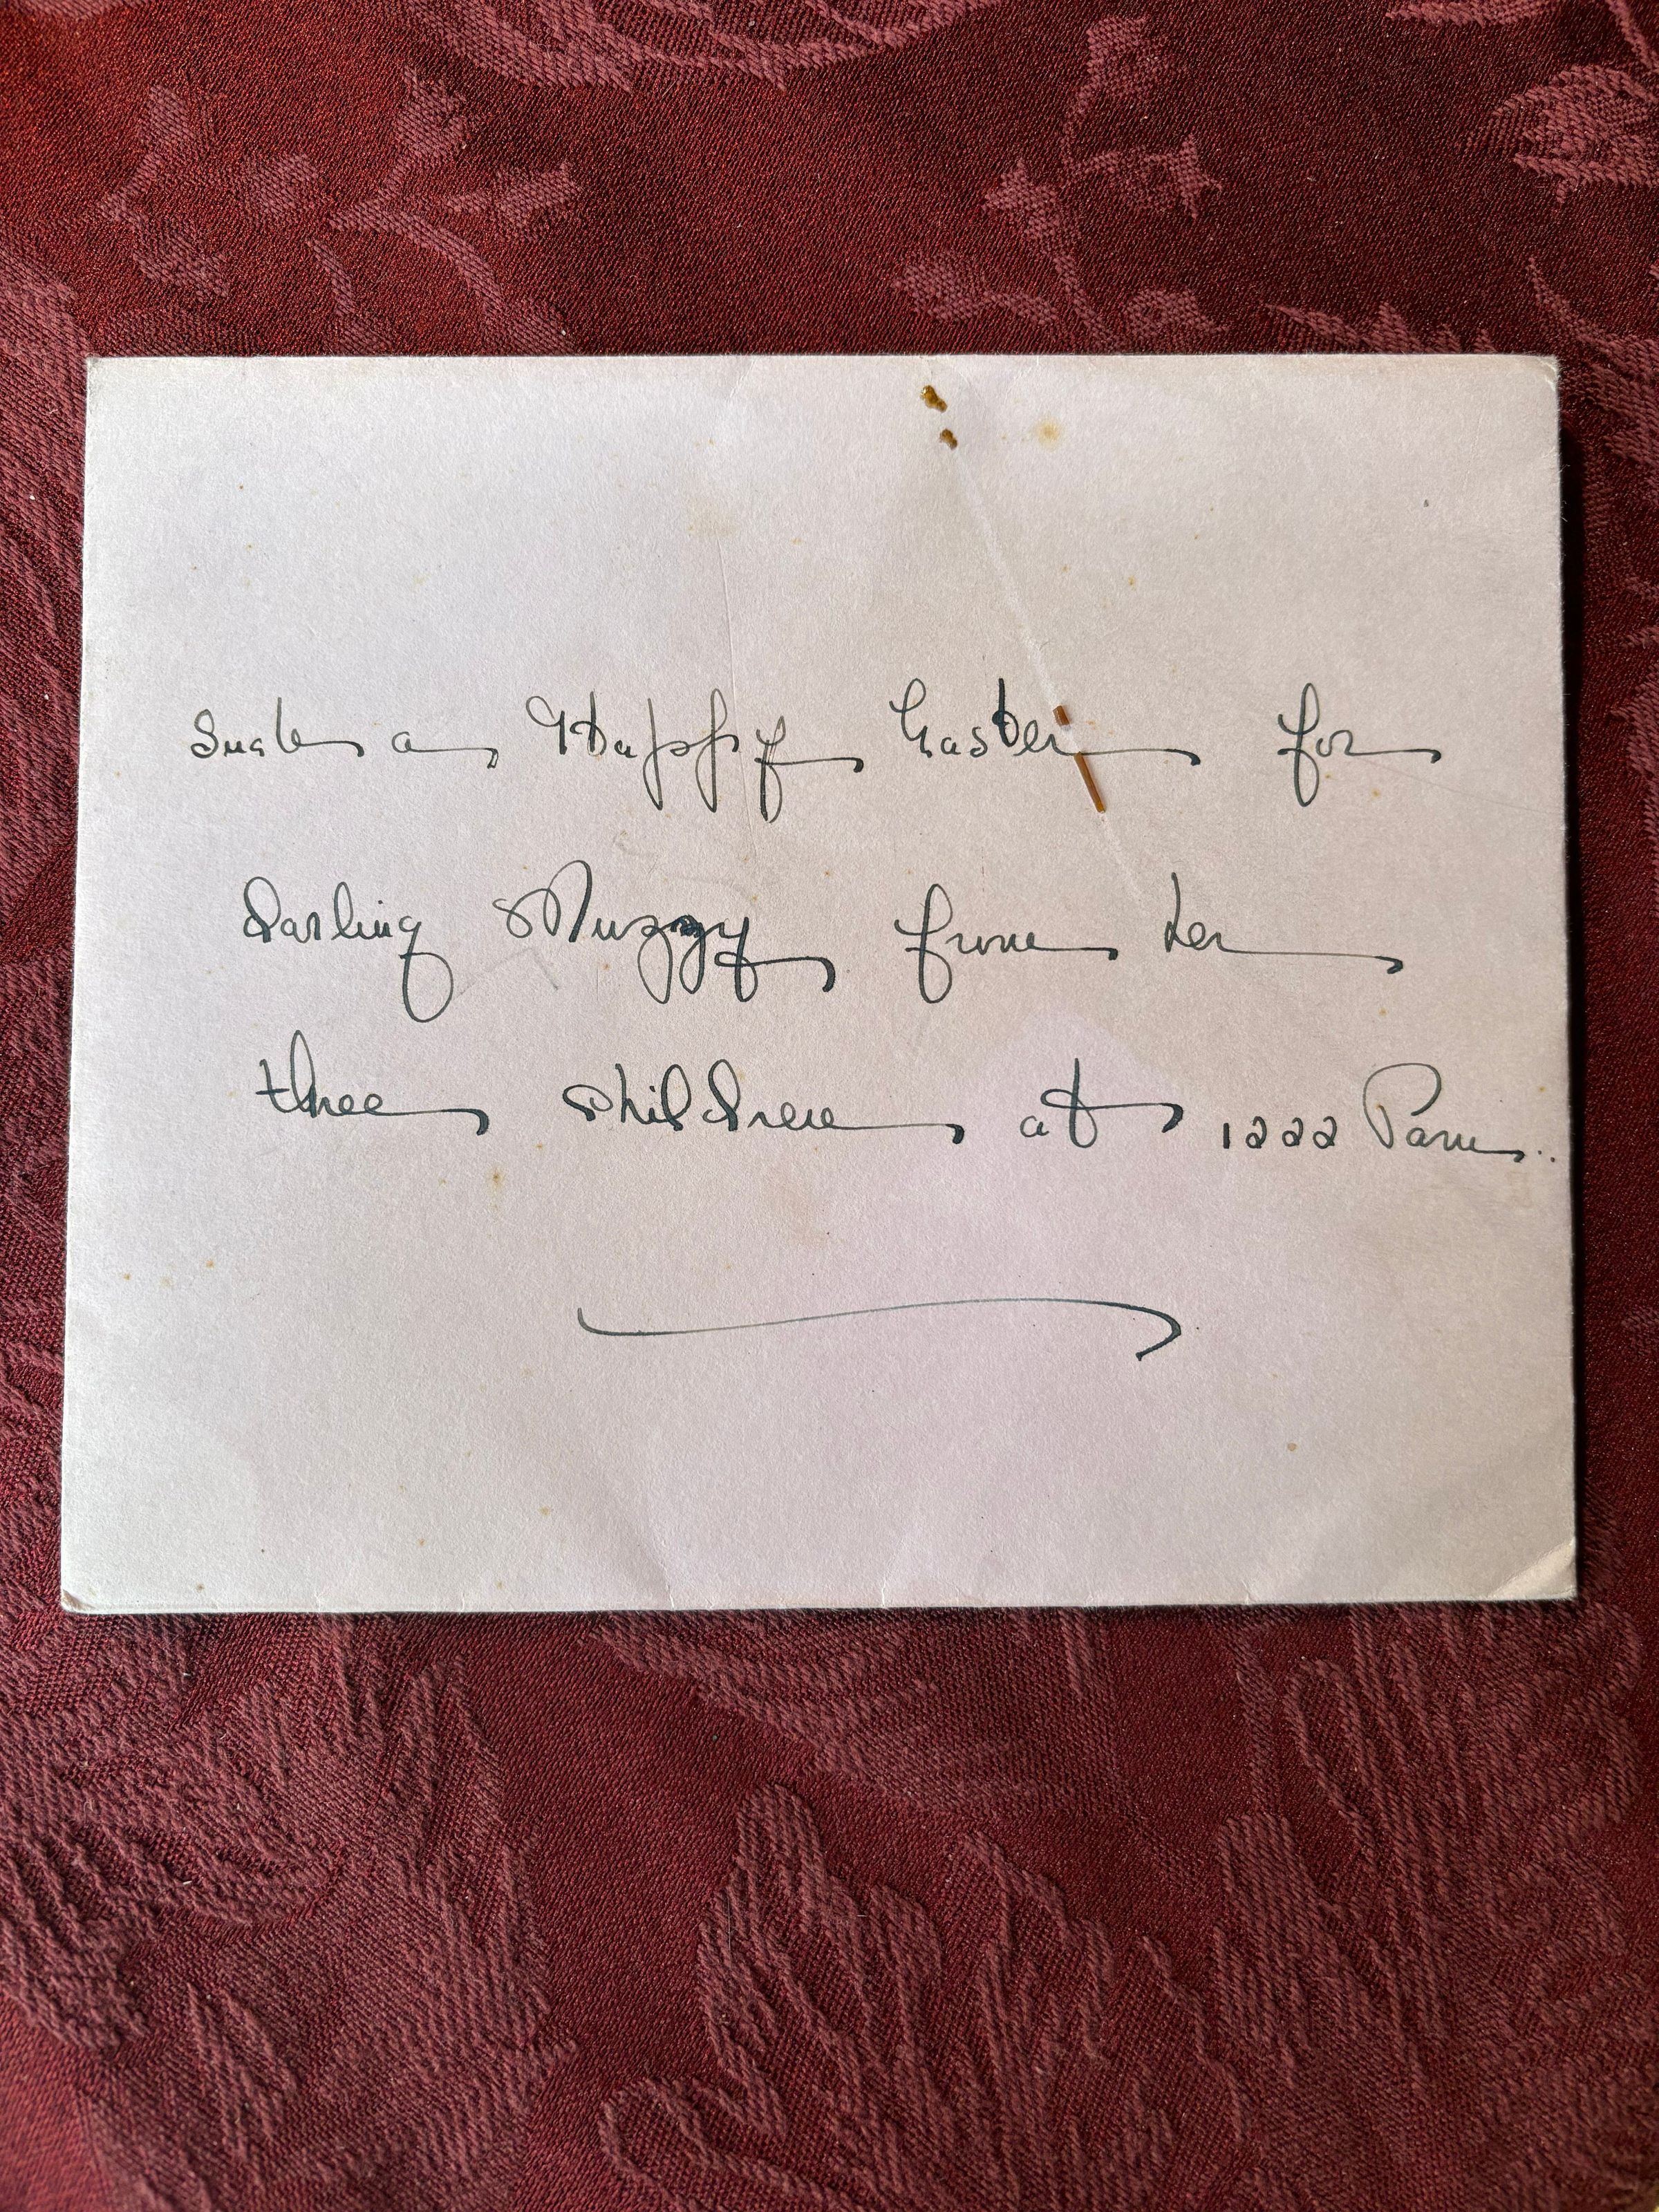 Such a Happy Easter for
darling Muzzy from her
three children at 1222 Park..